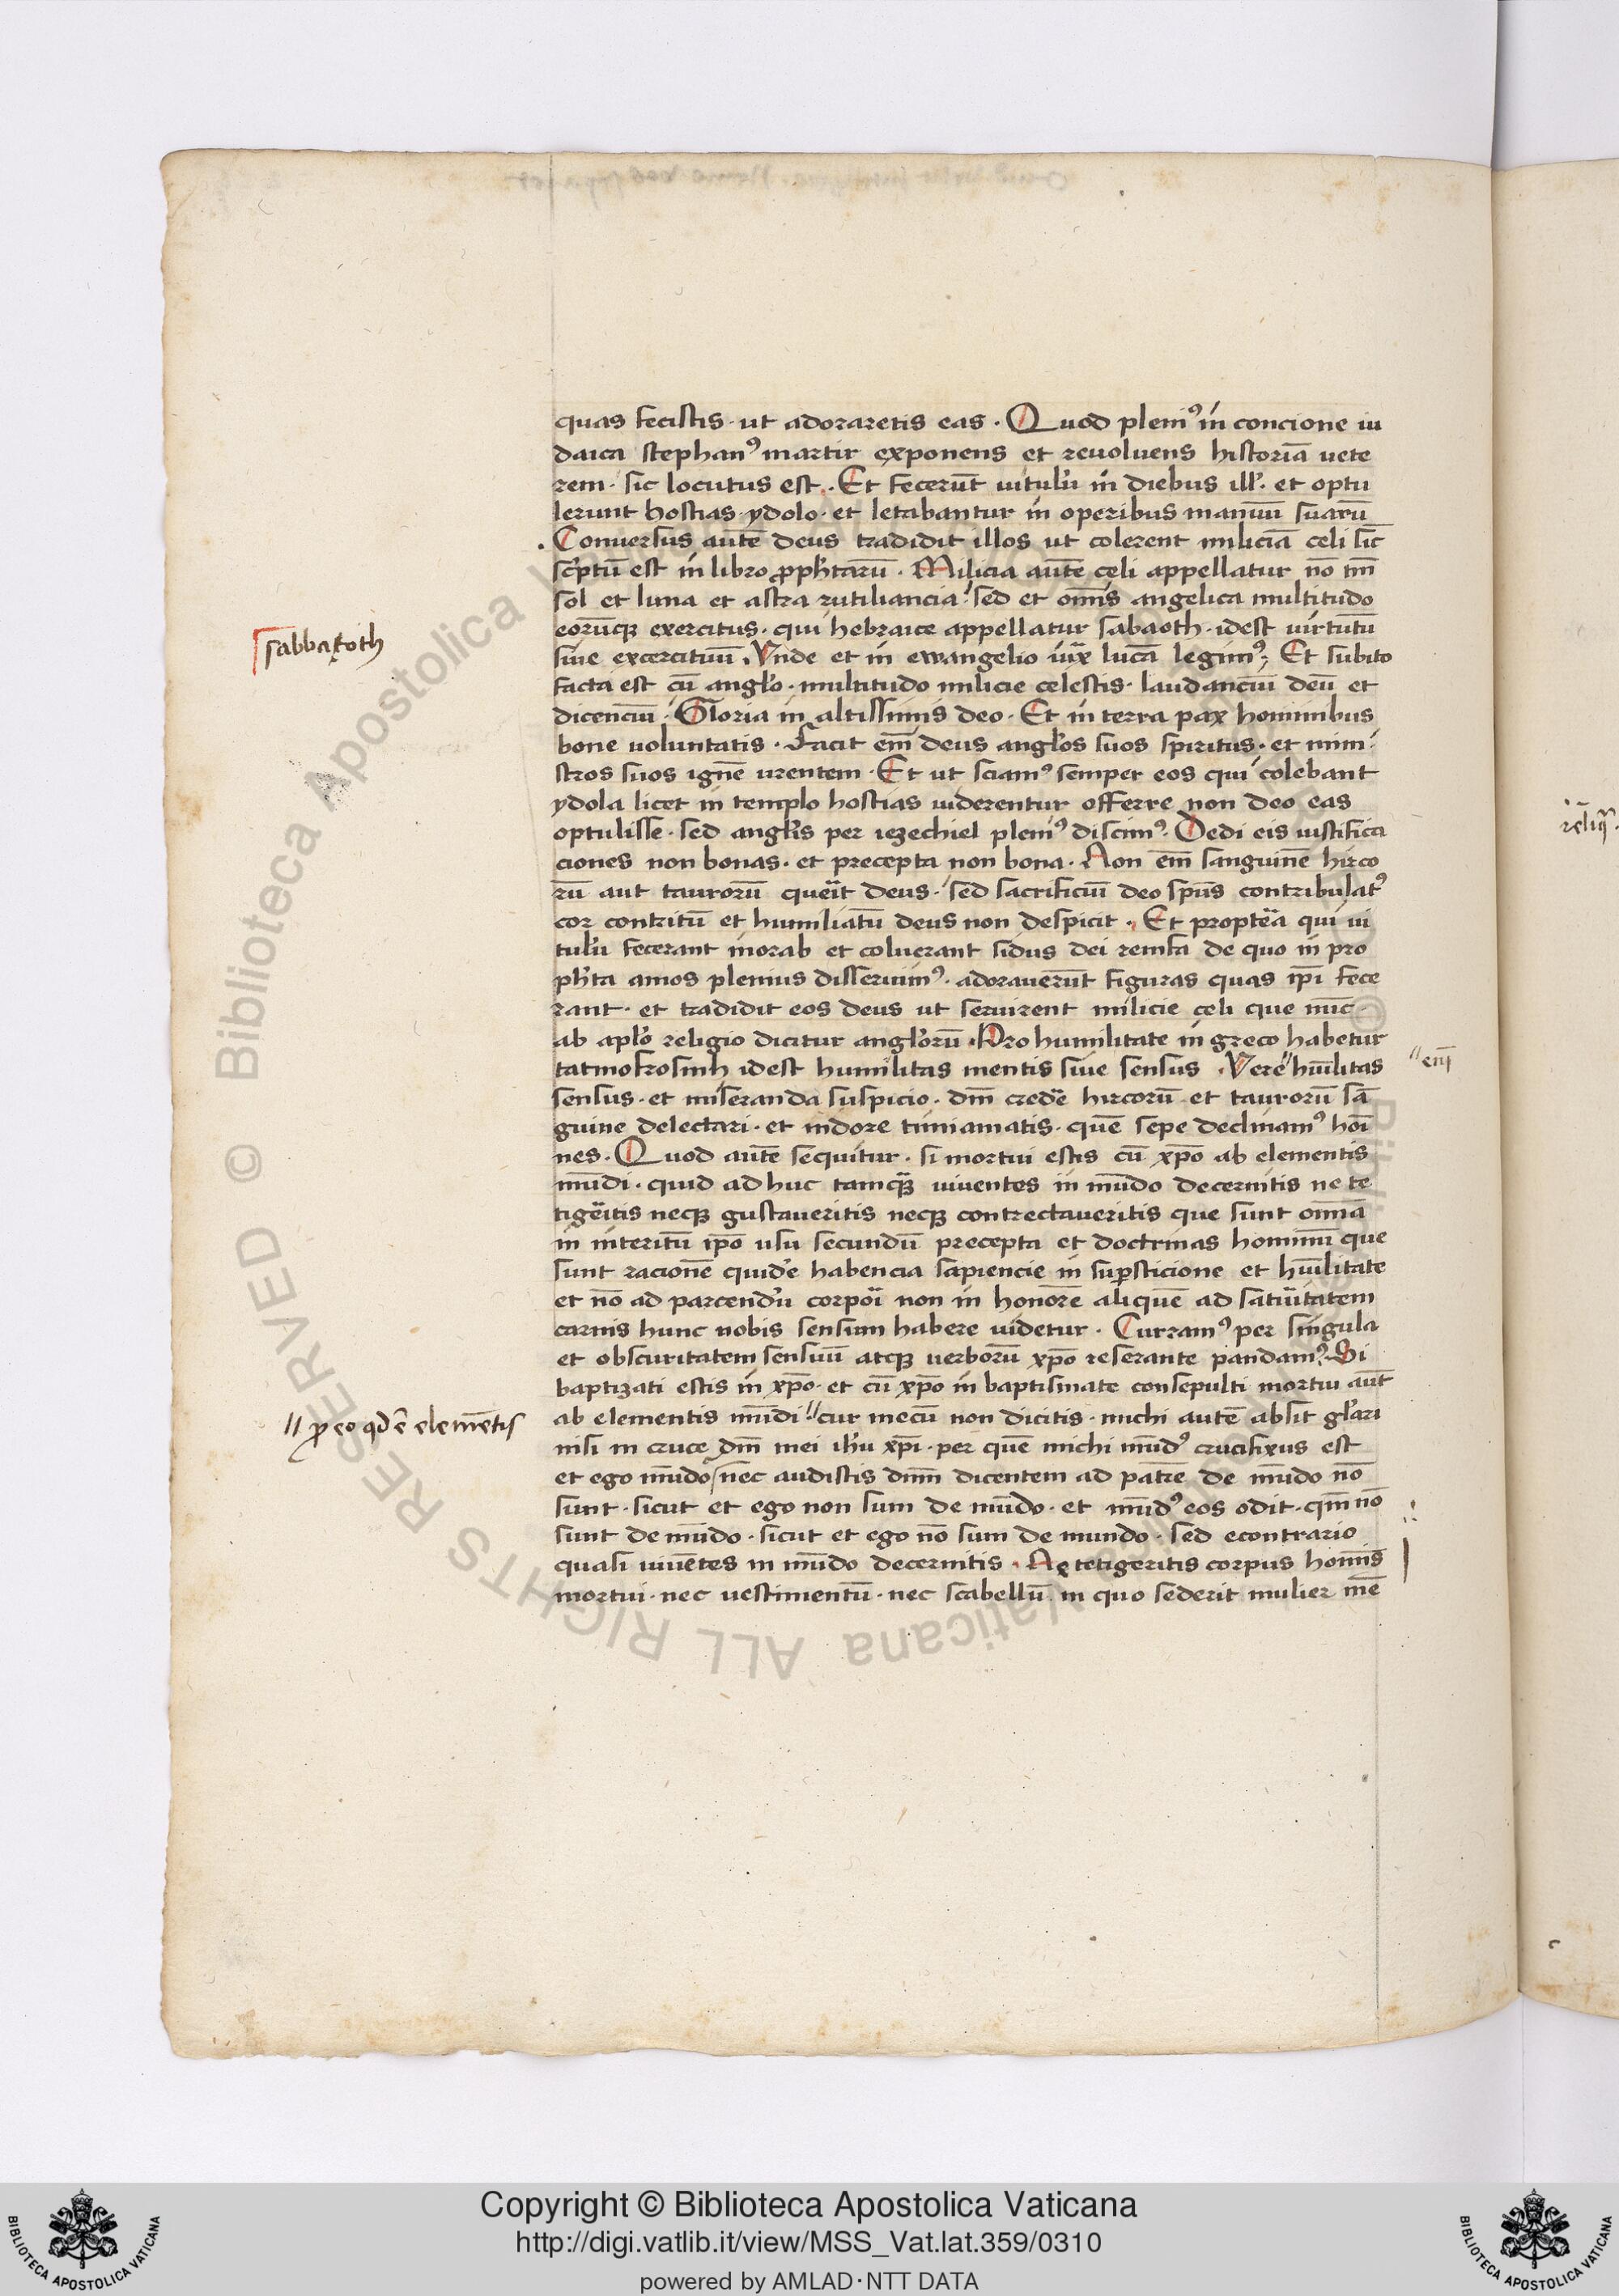 quas fecistis · ut adoraretis eas · Quod pleniꝰ in concione iu
daica stephanꝰ martir exponens et reuoluens historiā uete
rem · sic locutus est · Et fecerūt uitulū in diebus ill᷒ · et optu
lerunt hostias ydolo · et letabantur in operibus manuū suarū
Conuersus autē deus tradidit illos ut colerent miliciā celi sic̄
sc̓ptū est in libro ꝓph̄tarū · Milicia autē celi appellatur nō tm̄
sol et luna et astra rutiliancia · sed et om̄is angelica multitudo
eorūcꝫ exercitus · qui hebraice appellatur sabaoth · idest uirtutū
siue excercituū · Vnde et in ewangelio iux̄ lucā legimꝰ · Et subito
facta est cū angl̄o · multitudo milicie celestis · laudanciū deū et
dicenciū · Gloria in altissimis deo · Et in terra pax hominibus
bone uoluntatis · Facit em̄ deus angl̄os suos spiritus · et mini
stros suos ignē urentem · Et ut sciamꝰ semper eos qui colebant
ydola licet in templo hostias uiderentur offerre non deo eas
optulisse · sed angl̄is per iezechiel pleniꝰ discimꝰ · Dedi eis iustifica
ciones non bonas · et precepta non bona · Non em̄ sanguinē hirco
rū aut taurorū queīt deus · sed sacrificiū deo sp̄us contribulatꝰ
cor contritū et humiliatū deus non despicit · Et propteā qui ui
tulū fecerant in orab et coluerant sidus dei remfa de quo in pro
ph̄ta amos plenius disseruimꝰ · adorauerūt figuras quas ip̄i fece
rant · et tradidit eos deus ut seruirent milicie celi que nūc ·
ab apl̄o religio dicitur angl̄orū · Pro humilitate in greco habetur
tatinofrosinh idest humilitas mentis siue sensus · Vere〃hūilitas
sensus · et miseranda suspicio · dm̄ credē hircorū et taurorū sā
guine delectari · et indore timiamatis · quē sepe declinamꝰ hoī
nes · Quod autē sequitur · si mortui estis cū xp̄o ab elementis
mūdi · quid ad huc tamqꝫ uiuentes in mūdo decernitis ne te
tigeītis necꝫ gustaueritis necꝫ contrectaueritis que sunt om̄ia
in interitū ip̄o usu secundū precepta et doctrinas hominū que
sunt racionē quidē habencia sapiencie in suꝑsticione et hūilitate
et nō ad parcendū corpoī non in honore aliquē ad satuītatem
carnis hunc nobis sensum habere uidetur · Curramꝰ per singula
et obscuritatem sensuū atcꝫ uerborū xp̄o reserante pandamꝰ Si
baptizati estis in xp̄o · et cū xp̄o in baptismate consepulti mortui aut̄
ab elementis mūdi · 〃cur mecū non dicitis · michi autē absit gl̄ari
nisi in cruce dm̄ mei ih̄u xp̄i · per quē michi mūdꝰ crucifixus est
et ego mūdo nec audistis dnm̄ dicentem ad patrē de mūdo nō
sunt · sicut et ego non sum de mūdo · et mūdꝰ eos odit · qm̄ nō
sunt de mūdo · sicut et ego nō sum de mundo · sed econtrario
quasi uiuētes in mūdo decernitis · Ne tetigeritis corpus hom̄is
mortui · nec uestimentū · nec scabellū in quo sederit mulier mē
〃 em̄
〃 ꝓ eo qd̄ ē elemētis
Copyright © Biblioteca Apostolica Vaticana
http://digi.vatlib.it/view/MSS_Vat.lat.359/0310
powered by AMLAD·NTT DATA
BIBLIOTECA APOSTOLICA VATICANA
BIBLIOTECA APOSTOLICA VATICANA